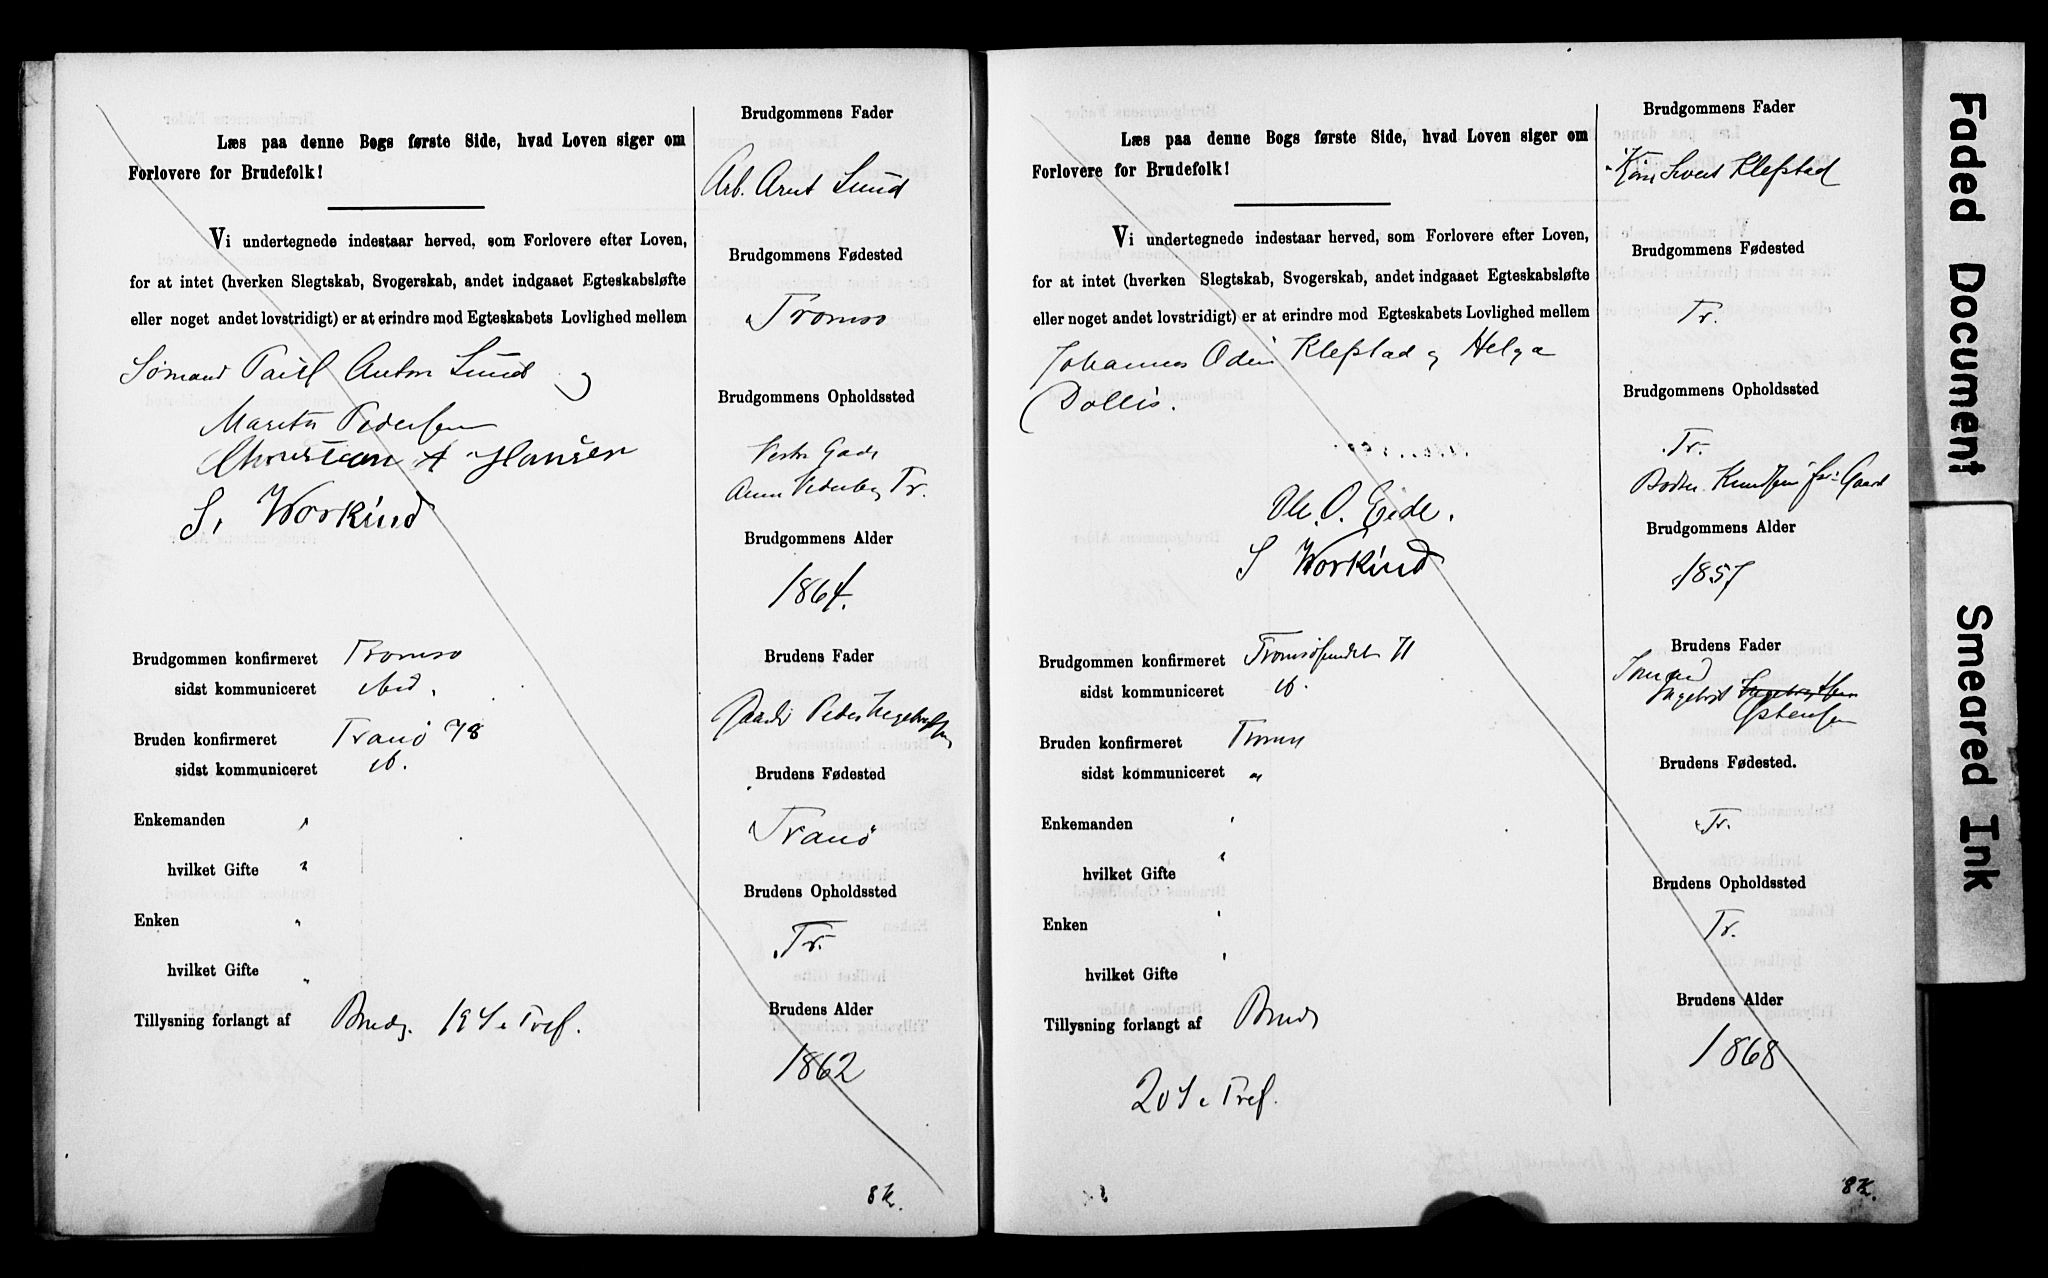 Læs paa denne Bogs første Side, hvad Loven siger om
Forlovere for Brudefolk!
Vi undertegnede indestaar herved, som Forlovere efter Loven,
for at intet (hverken Slegtskab, Svogerskab, andet indgaaet Egteskabsløfte
eller noget andet lovstridigt) er at erindre mod Egteskabets Lovlighed mellem
Sømand Paul Anton Lund og
Marita Pedersen
Christian A Hansen
S. Workind
Brudgommen konfirmeret Tromsø
sidst kommuniceret
Bruden konfirmeret Tranø 78
sidst kommuniceret
Enkemanden "
hvilket Gifte "
Enken "
hvilket Gifte "
Tillysning forlangt af Brudg. 19 S e Tref.
Brudgommens Fader
Arb. Arnt Lund
Brudgommens Fødested
Tromsø
Brudgommens Opholdssted
Vestre Gade
Tr.
Brudgommens Alder
1864.
Brudens Fader
Gaardb Peder Ingebrigtsen
Brudens Fødested
Tranø
Brudens Opholdssted
Tr.
Brudens Alder
1862
8 K.
Læs paa denne Bogs første Side, hvad Loven siger om
Forlovere for Brudefolk!
Vi undertegnede indestaar herved, som Forlovere efter Loven,
for at intet (hverken Slegtskab, Svogerskab, andet indgaaet Egteskabsløfte
eller noget andet lovstridigt) er at erindre mod Egteskabets Lovlighed mellem
Johannes Odin Klefstad og Helga
Dollis.
Ole. O. Eide.
S Workind
Brudgommen konfirmeret Tromsøsundet 71
sidst kommuniceret
Bruden konfirmeret Tromsø
sidst kommuniceret "
Enkemanden "
hvilket Gifte "
Enken "
hvilket Gifte "
Tillysning forlangt af Brudg
20 S e Tref.
Brudgommens Fader
Sivert Klefstad
Brudgommens Fødested
Tr.
Brudgommens Opholdssted
Tr.
Knudsens Gaard
Brudgommens Alder
1857
Brudens Fader
Sømand
Ingebrigt Ingebrigtsen
Østensen
Brudens Fødested.
Tr.
Brudens Opholdssted
Tr.
Brudens Alder
1868
8 K.
Faded Document
Smeared Ink